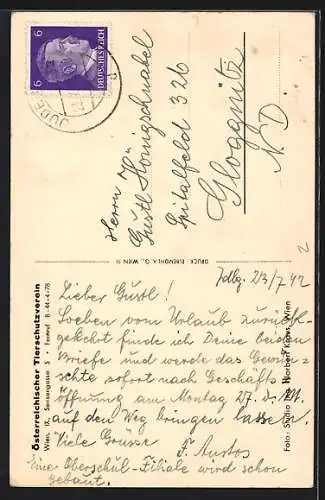 6 6
DEUTSCHES REICH
JUDE
Herrn
Gustl Honigschnabel
Spitalfeld 326
Gloggnitz
N. D.
2
DRUCK: ELBEMÜHL A. G., WIEN IV
Österreichischer Tierschutzverein
Wien IX, Sensengasse 5 • Fernruf B-44-4-78
Foto: Studio Norbert Kraus, Wien
Jdbg. 23/7 42
Lieber Gustl!
Soeben vom Urlaub zurück-
gekehrt finde ich Deine beiden
Briefe und werde das Gewün-
schte sofort nach Geschäfts-
öffnung am Montag 27. d. M.
auf den Weg bringen lassen.
Viele Grüsse
Eine Oberschul-Filiale wird schon
gebaut.